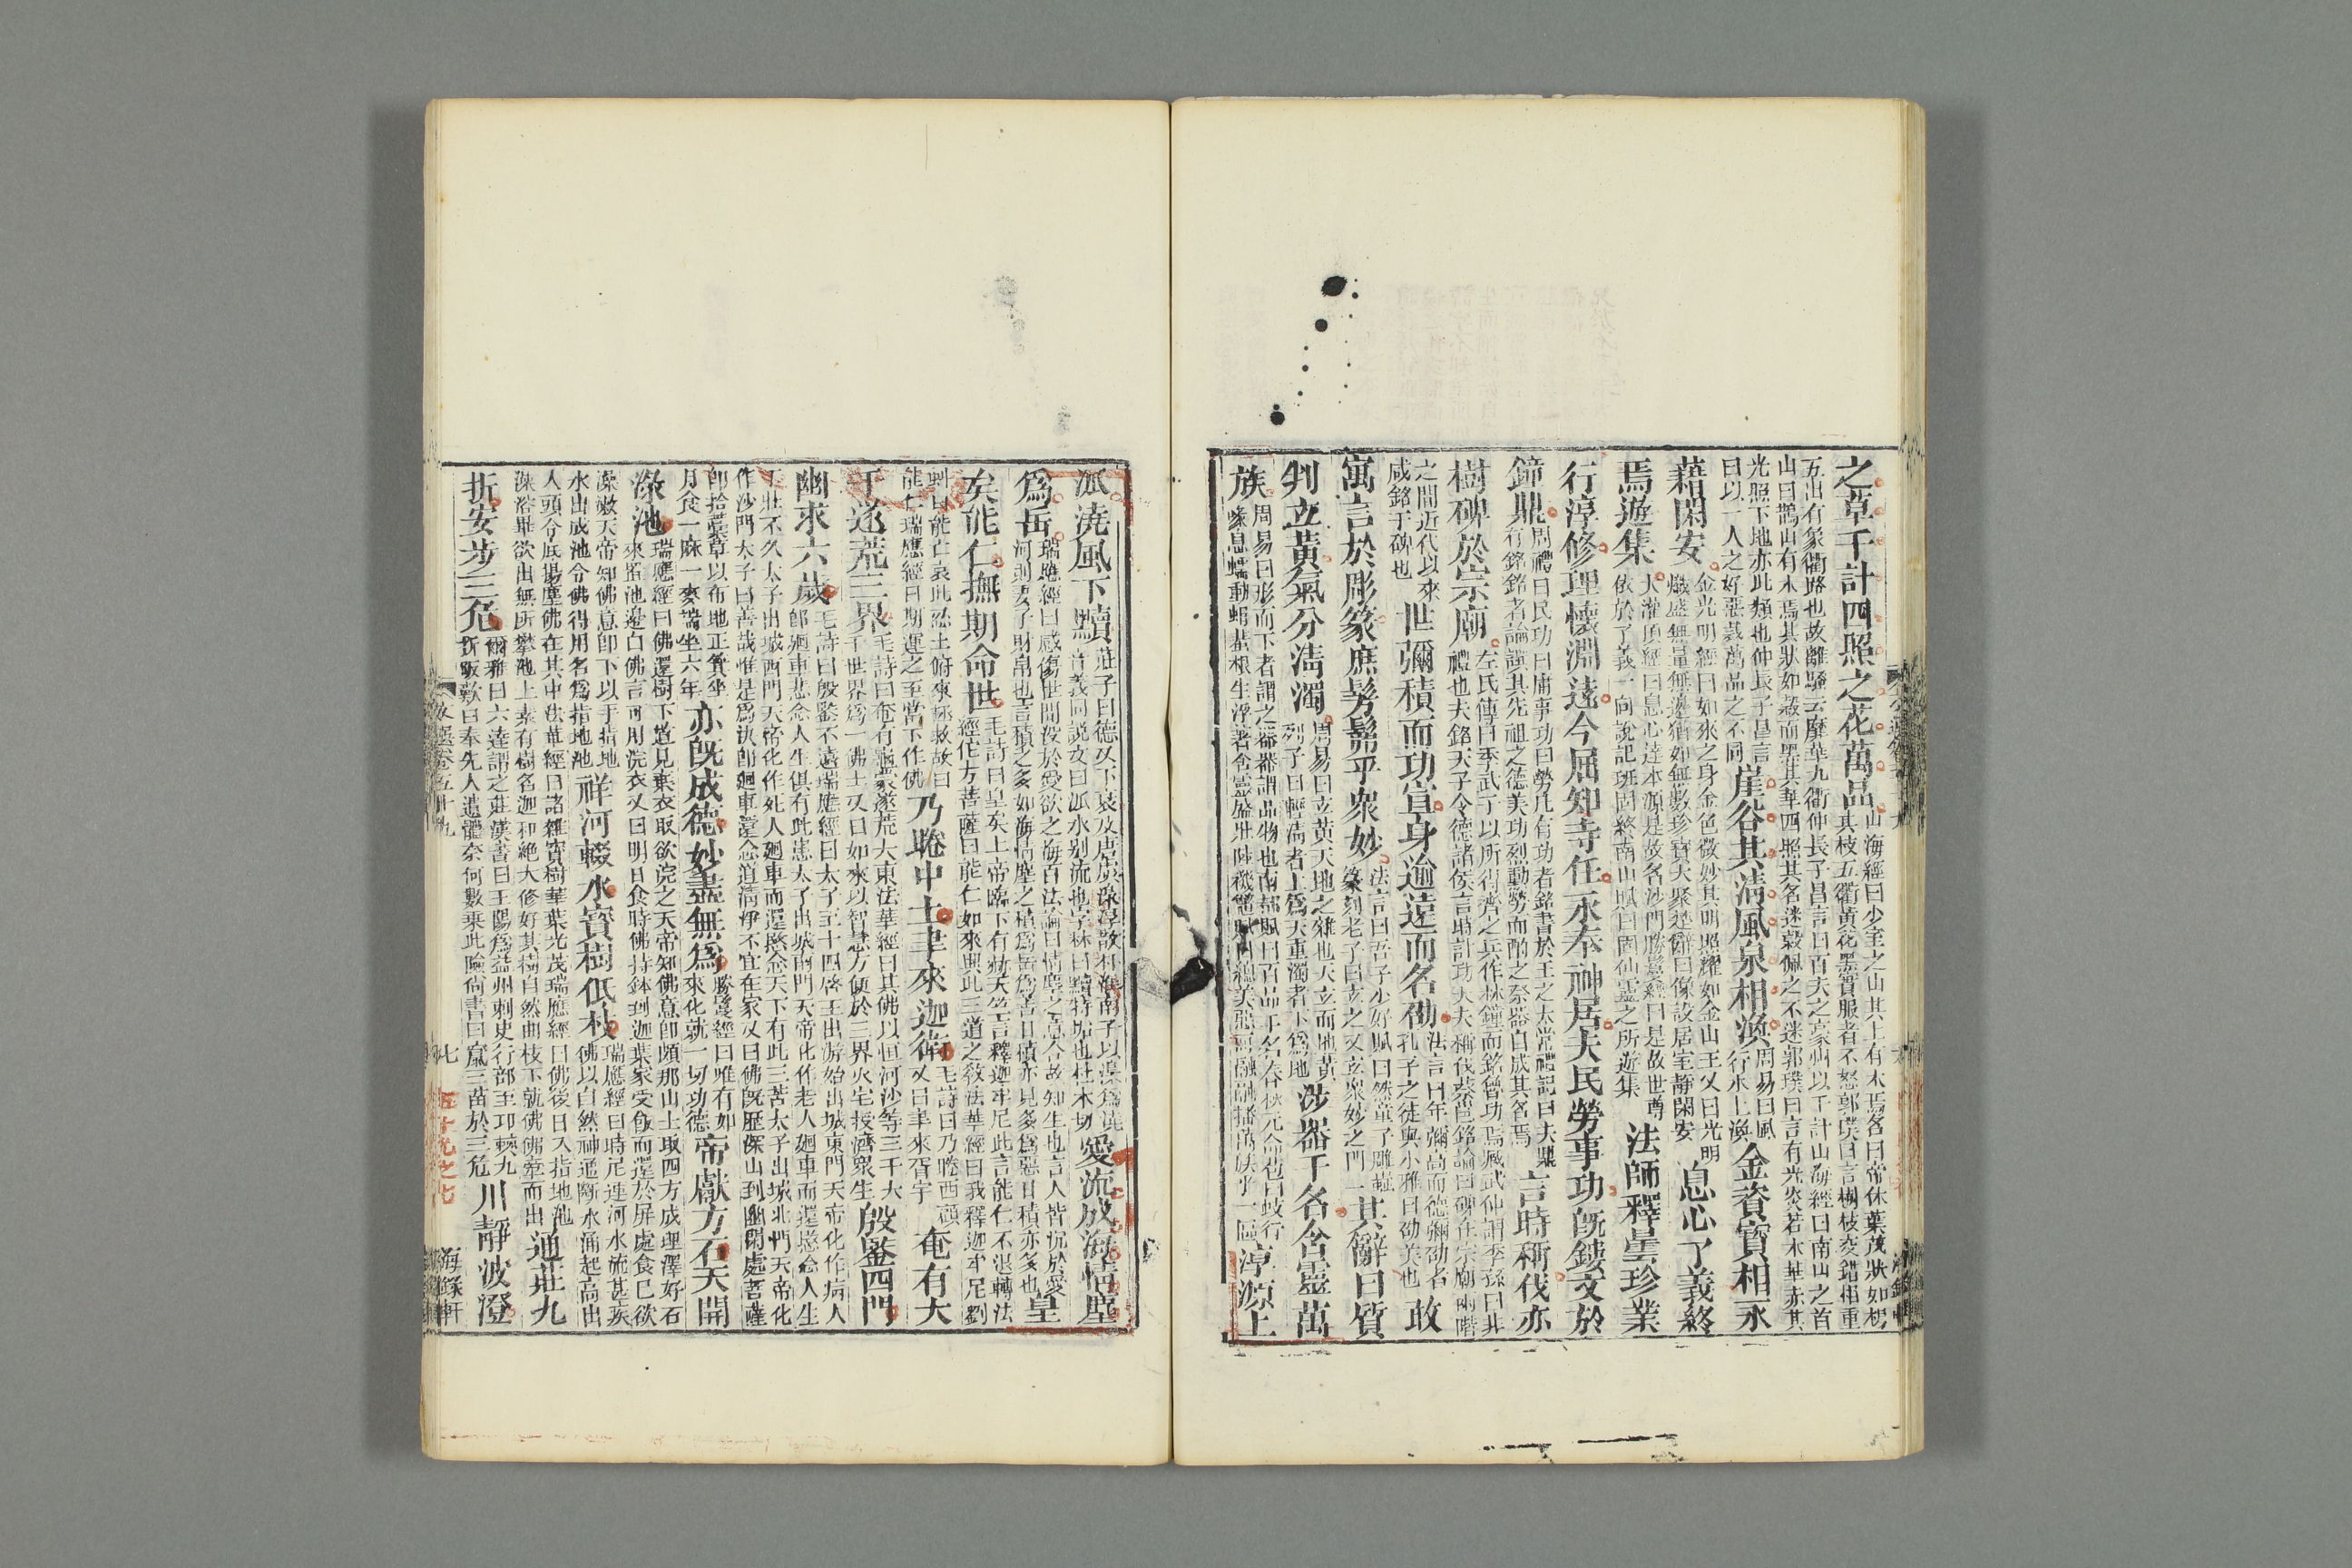 之草千計四照之花萬品
山海經曰少室之山其上有木焉名曰帝休葉茂狀如楊
其枝五衢黃花黑實服者不怒郭璞曰言樹枝交錯相重
五出有象衢路也故離騷云靡華九衢仲長子昌言曰百夫之豪州以千計山海經曰南山之首
山曰鵲山有木焉其狀如榖而黑其華四照其名迷榖佩之不迷郭璞曰言有光炎若木華赤其
光照下地亦此類也仲長子昌言
曰以一人之好惡裁萬品之不同
崖谷共清風泉相渙
周易曰風
行水上渙
金資寶相永
藉閑安
金光明經曰如來之身金色微妙其明照耀如金山王又曰光明
熾盛無量無邊猶如無數珍寶大聚楚辭曰像設居室靜閑安
息心了義終
焉遊集
大灌頂經曰息心達本源是故名沙門勝鬘經曰是故世尊
依於了義一向說記班固終南山賦曰固仙靈之所遊集
法師釋曇珍業
行淳修理懷淵遠今屈知寺任永奉神居夫民勞事功既鏤文於
鐘鼎
周禮曰民功曰庸事功曰勞凡有功者銘書於王之太常禮記曰夫鼎
有銘銘者論譔其先祖之德美功烈勳勞而酌之祭器自成其名焉
言時稱伐亦
樹碑於宗廟
左氏傳曰季武子以所得齊之兵作林鍾而銘魯功焉臧武仲謂季孫曰非
禮也夫銘天子令德諸侯言時計功大夫稱伐蔡邕銘論曰碑在宗廟兩階
之間近代以來
咸銘于碑也
世彌積而功宣身逾遠而名劭
法言曰年彌高而德彌劭者
孔子之徒與小雅曰劭美也
敢
寓言於彫篆庶髣髴乎衆妙
法言曰吾子少好賦曰然童子雕蟲
篆刻老子曰玄之又玄衆妙之門
其辭曰質
判玄黃氣分清濁
周易曰玄黃天地之雜也天玄而地黃
列子曰輕清者上爲天重濁者下爲地
涉器千名含靈萬
族
周易曰形而下者謂之器器謂品物也南都賦曰百品千名春秋元命苞曰蚑行
喙息蠕動蜎蜚根生浮著含靈盛壯陸機鼈賦曰總美惡而融融播萬族乎一區
淳源上
派澆風下黷
莊子曰德又下衰及唐虞澆淳散朴淮南子以澆爲
音義同說文曰派水別流也字林曰黷持垢也杜木切
愛流成海情塵
爲岳
瑞應經曰感傷世間沒於愛欲之海百法論曰情塵之意合故知生也言人皆沉於愛
河剥妻子財帛也言積之多如海情塵之積爲岳爲善日積亦見多爲惡日積亦多也
皇
矣能仁撫期命世
毛詩曰皇矣上帝臨下有赫天竺言釋迦牟尼此言能仁不退轉法
經佗方菩薩曰能仁如來興此三道之教法華經曰我釋迦牟尼劉
虯曰能仁哀此忍土俯來拯救故曰
能仁瑞應經曰期運之至當下作佛
乃睠中土聿來迦衛
毛詩曰乃睠西顧
又曰聿來胥宇
奄有大
千遂荒三界
毛詩曰奄有龜蒙遂荒大東法華經曰其佛以恒河沙等三千大
千世界爲一佛土又曰如來以智慧方便於三界火宅拔濟衆生
殷鑒四門
幽求六歲
毛詩曰殷鑒不遠瑞應經曰太子至十四啓王出游始出城東門天帝化作病人
即廻車悲念人生俱有此患太子出城南門天帝化作老人廻車而還愍念人生
丁壯不久太子出城西門天帝化作死人廻車而還愍念天下有此三苦太子出城北門天帝化
作沙門太子曰善哉惟是爲快即廻車還念道清淨不宜在家又曰佛既歷深山到幽閑處菩薩
即拾藁草以布地正箕坐
月食一麻一麥端坐六年
亦既成德妙盡無爲
勝鬘經曰唯有如
來化就一切功德
帝獻方石天開
淥池
瑞應經曰佛還樹下道見棄衣取欲浣之天帝知佛意即頗那山上取四方成理澤好石
來置池邊白佛言可用浣衣又曰明日食時佛持鉢到迦葉家受飯而還於屏處食已欲
澡漱天帝知佛意即下以手指地
水出成池令佛得用名爲指地池
祥河輟水寶樹低枝
瑞應經曰時尼連河水流甚疾
佛以自然神通斷水涌起高出
人頭令底揚塵佛在其中法華經曰諸雜寶樹華葉光茂瑞應經曰佛後日入指地池
澡浴畢欲出無所攀池上素有樹名迦和絶大修好其樹自然曲枝下就佛佛牽而出
通莊九
折安步三危
爾雅曰六達謂之莊漢書曰王陽爲益州刺史行部至邛僰九
折阪歎曰奉先人遺體奈何數乘此險尚書曰竄三苗於三危
川靜波澄
文選卷五十九
七
五十九之七
海錄軒